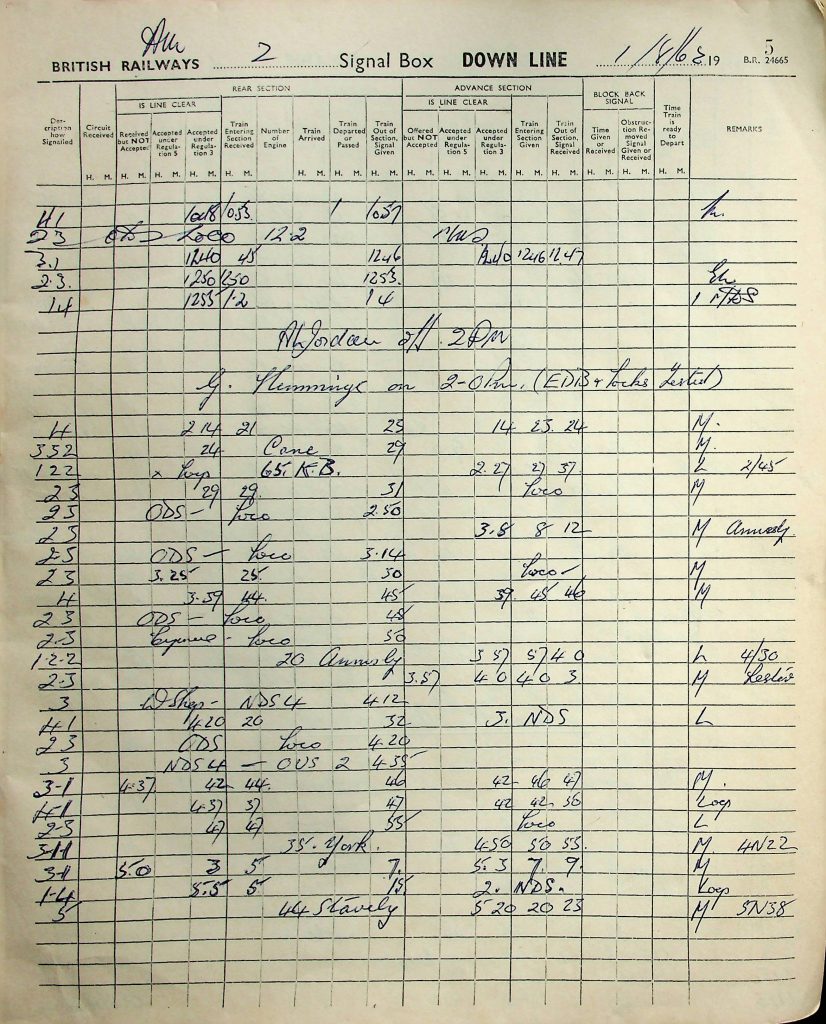 Am 5
BRITISH RAILWAYS 2 Signal Box DOWN LINE 1/8/68 19 B.R. 24665
REAR SECTION ADVANCE SECTION BLOCK BACK SIGNAL
IS LINE CLEAR IS LINE CLEAR
Description how Signalled Circuit Received Received but NOT Accepted Accepted under Regulation 5 Accepted under Regulation 3 Train Entering Section Received Number of Engine Train Arrived Train Departed or Passed Train Out of Section, Signal Given Offered but NOT Accepted Accepted under Regulation 5 Accepted under Regulation 3 Train Entering Section Given Train Out of Section, Signal Received Time Given or Received Obstruction Removed Signal Given or Received Time Train is ready to Depart REMARKS
H. M. H. M. H. M. H. M. H. M. H. M. H. M. H. M. H. M. H. M. H. M. H. M. H. M. H. M. H. M. H. M.
41 1048 1053. 1 1057
23 ODS Loco 12.2
3.1 1240 45 1246 1240 1246 12.47
2.3. 1250 1250 1253.
14 1255 1.2 1 4
AhJordan off 2 Pm
G. Flemmings on 2-0 Pm. (EDB & Locks Tested)
4 2 14 21 25 14 23 24 M.
332 24 Cane 29 M.
122 x Loop 65. K.B. 2.27 27 37. L 2/45
23 29 29. 31 Loco M
23 ODS - Loco 2.50
23 3.8 8 12 M Annesly.
25 ODS - Loco 3.14
23 3.25 25 30 Loco - M
4 3.39 44. 45 39. 45 46 M
23 ODS - Loco 45
2.3 - Loco 50
1-2-2 20 Annesly 3 57 57 4 0 L 4/30
2.3 3.57 4 0 4 0 3 M Leslie
3 W Shop - NDS 4 4.12
41 4.20 20 32 3. NDS L
23 ODS Loco 4.20
3 NDS 4 - OUS 2 4.35
3-1 4.37 42 44. 46 42 46 47 M.
41 4.37 37 47 42 42 50 Loop
23 47 47 55 Loco L
311 35. York. 4.50 50 55. M. 4N22
31 5.0 3 5 7. 5.3 7. 9. M
1-4 5.5 5 15 2. NDS. Loop
5 44 Stavely 5 20 20 23 M 5N38